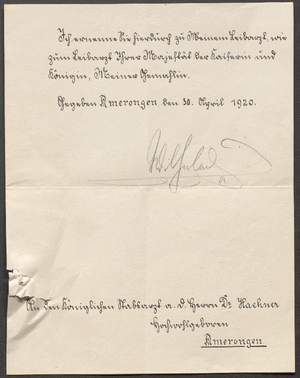 Ich ernenne Sie hierdurch zu Meinem Leibarzt, wie
zum Leibarzt Ihrer Majestät der Kaiserin und
Königin, Meiner Gemahlin.
Gegeben Amerongen den 30. April 1920.
Wilhelm
An den Königlichen Stabsarzt a. D. Herrn Dr Haehner
Hochwohlgeboren
Amerongen